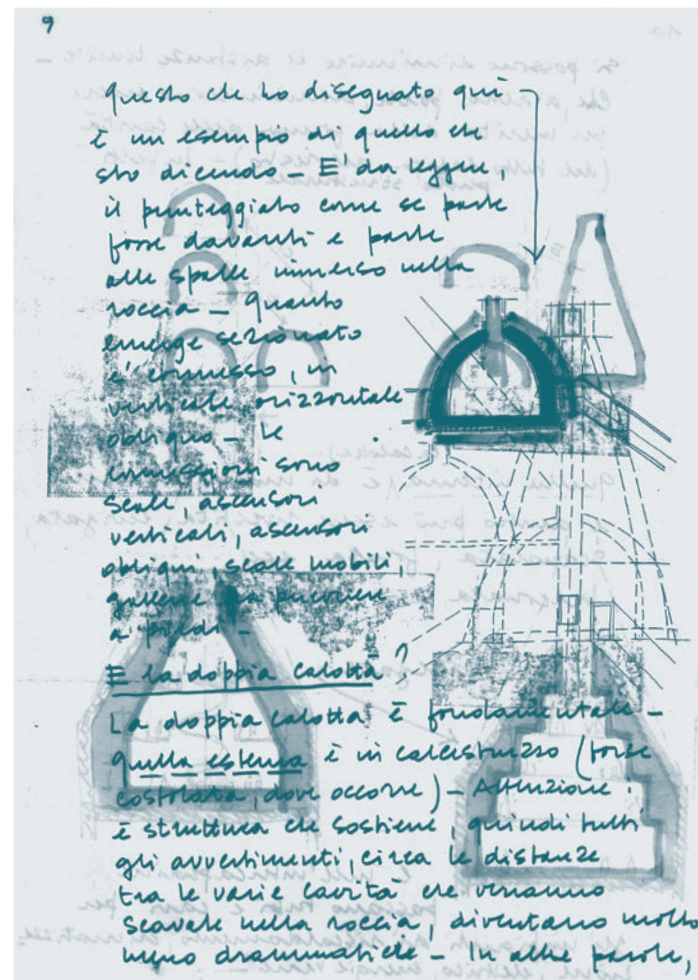 9
questo che ho disegnato qui
è un esempio di quello che
sto dicendo – E' da leggere,
il punteggiato come se parte
fosse davanti e parte
alle spalle immerso nella
roccia – Quanto
emerge sezionato
e' connesso, in
verticale orizzontale
obliquo – Le
connessioni sono
scale, ascensori
verticali, ascensori
obliqui, scale mobili,
gallerie da percorrere
a piedi –
E la doppia calotta?
La doppia calotta è fondamentale –
quella esterna è in calcestruzzo (forse
costolata, dove occorre) – Attenzione!
è struttura che sostiene, quindi tutti
gli avvertimenti, circa le distanze
tra le varie cavità che verranno
scavate nella roccia, diventano molto
meno drammatiche – In altre parole,